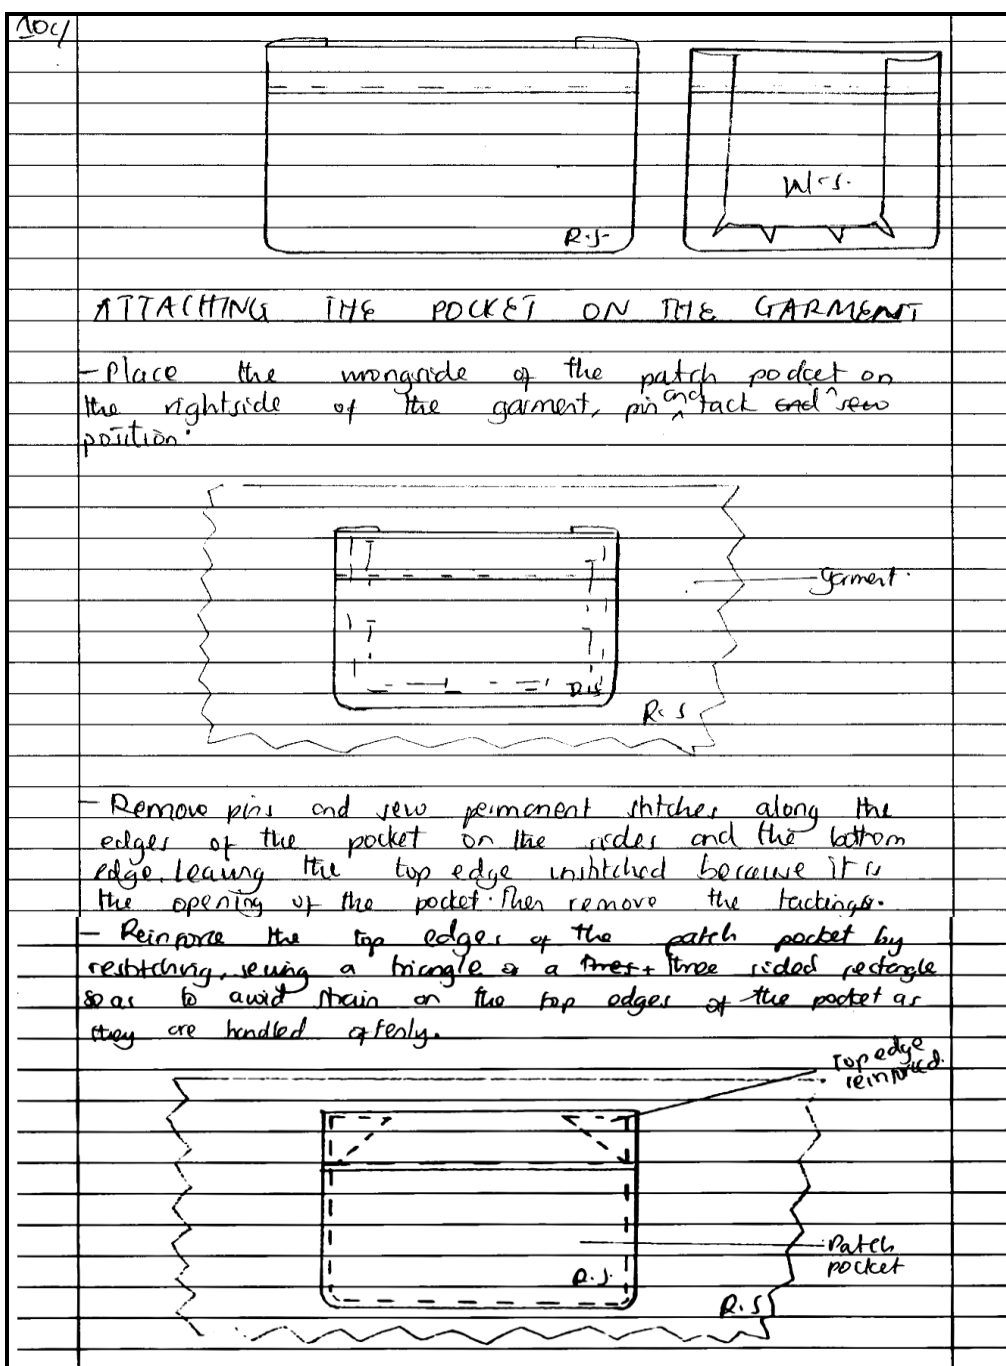 10c/
R.S
W.S.
ATTACHING THE POCKET ON THE GARMENT
- Place the wrongside of the patch pocket on
the rightside of the garment, pin and tack and sew
position.
garment.
R.S
R.S
- Remove pins and sew permanent stitches along the
edges of the pocket on the sides and the bottom
edge, leaving the top edge unstitched because it is
the opening of the pocket. Then remove the tackings.
- Reinforce the top edges of the patch pocket by
restitching, sewing a triangle or a three sided rectangle
so as to avoid strain on the top edges of the pocket as
they are handled oftenly.
Top edge
reinforced.
Patch
pocket
R.S.
R.S